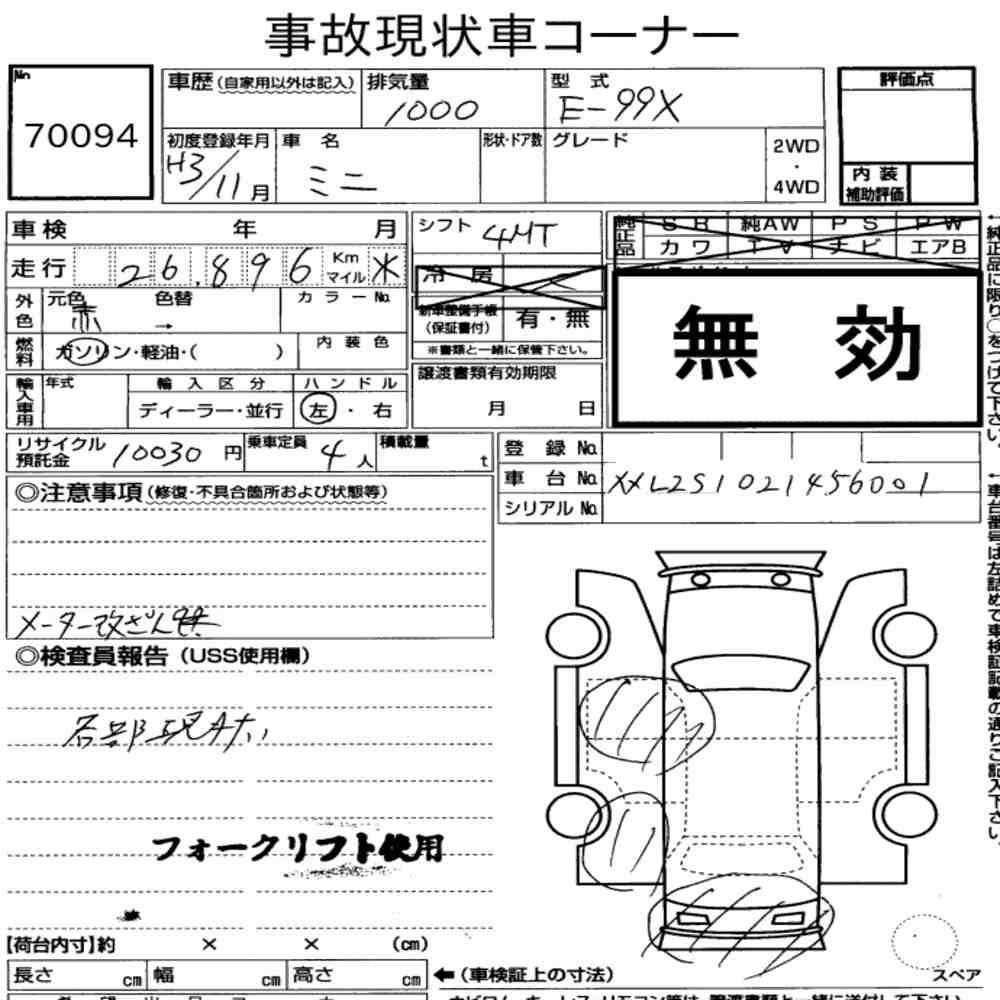 事故現状車コーナー
No. 70094
車歴(自家用以外は記入) 排気量 1000 型式 E-99X 評価点
初度登録年月 H3/11月 車名 ミニ 形状・ドア数 グレード 2WD・4WD
内装補助評価
車検 年 月 シフト 4MT
純正品 SR 純AW PS PW
カワ TV ナビ エアB
走行 26,896 Km マイル ※
冷房
外色 元色 赤 色替 → カラーNo.
新車整備手帳(保証書付) 有・無
※書類と一緒に保管下さい。
無効
燃料 ガソリン・軽油・( ) 内装色
輸入車用 年式 輸入区分 ディーラー・並行 ハンドル 左・右
譲渡書類有効期限 月 日
リサイクル預託金 10030円 乗車定員 4人 積載量 t
登録No.
車台No. XXL2S1021456001
シリアルNo.
◎注意事項(修復・不具合箇所および状態等)
メーター改ざん車
◎検査員報告(USS使用欄)
各部現状
フォークリフト使用
【荷台内寸】約 × × (cm)
長さ cm 幅 cm 高さ cm ←(車検証上の寸法)
スペア
←純正品に限り○をつけて下さい。
←車台番号は左詰めで車検証記載の通りご記入下さい。